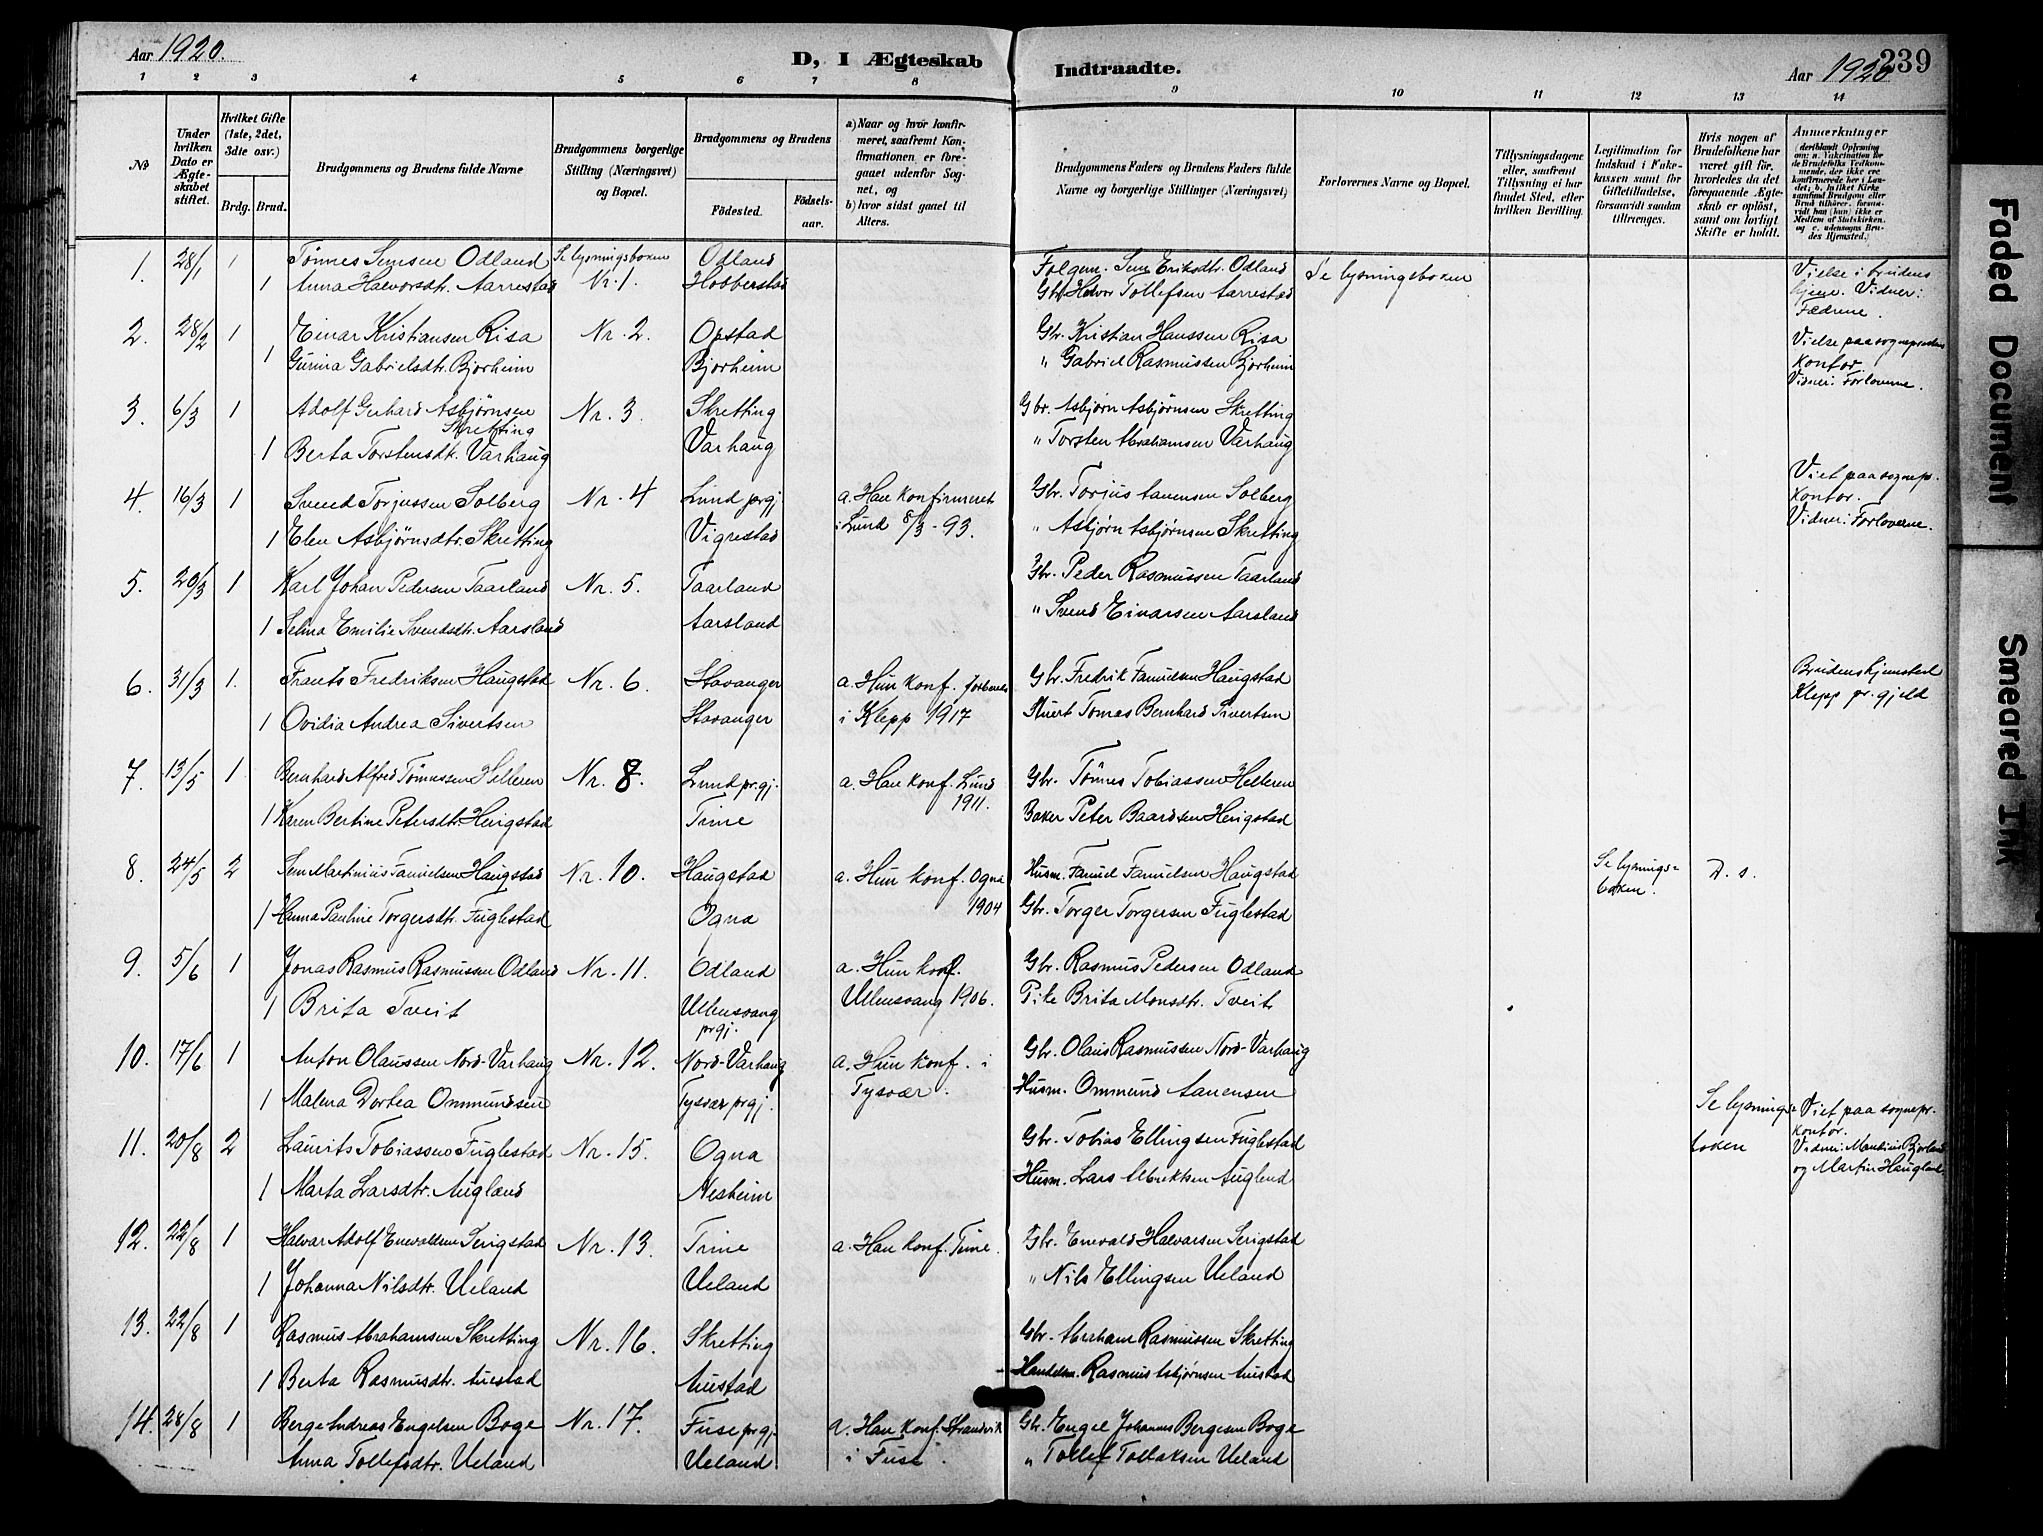 Aar 1920.
D, I Ægteskab
Indtraadte.
Aar 1920.
239
1 2 3 4 5 6 7 8 9 10 11 12 13 14
No
Under hvilken Dato er Ægteskabet stiftet.
Hvilket Gifte (1ste, 2det, 3die osv.)
Brdg. Brud.
Brudgommens og Brudens fulde Navne
Brudgommens borgerlige Stilling (Næringsvei) og Bopæl.
Brudgommens og Brudens
Födested.
Födselsaar.
a) Naar og hvor konfirmeret, saafremt Konfirmationen er foregaaet udenfor Sognet, og
b) hvor sidst gaaet til Alters.
Brudgommens Faders og Brudens Faders fulde Navne og borgerlige Stillinger (Næringsvei)
Forlovernes Navne og Bopæl.
Tillysningsdagene eller, saafremt Tillysning ei har fundet Sted, efter hvilken Bevilling.
Legitimation for Indskud i Enkekassen samt for Giftetilladelse, forsaavidt saadan tiltrænges.
Hvis nogen af Brudefolkene har været gift før, hvorledes da det foregaaende Ægteskab er oplöst, samt om lovligt Skifte er holdt.
Anmærkninger (deriblandt Oplysning om: a. Vakcination for de Brudefolks Vedkommende, der ikke ere konfirmerede her i Landet; b. hvilket Kirkesamfund Brudgom eller Brud tilhörer, forsaavidt han (hun) ikke er Medlem af Statskirken, og c. udensogns Brudes Hjemsted.)
1. 28/1 1 Tönnes Semsen Odland Se lysningsboken Odland Folgem. Sem Eriksdtr. Odland Se lysningsboken Vielse i brudens
1 Anna Halvorsdtr. Aarrestad Nr. 1. Hobberstad Gbr. Halvor Tollefsen Aarrestad hjem. Vidner:
Fædrene.
2. 28/2 1 Einar Kristiansen Risa Nr. 2. Opstad Gbr. Kristian Hanssen Risa Vielse paa sogneprestens
1 Gurina Gabrielsdtr. Bjorheim Bjorheim " Gabriel Rasmussen Bjorheim kontor.
Vidner: Forloverne.
3. 6/3 1 Adolf Gerhard Asbjørnsen Nr. 3. Skretting Gbr. Asbjørn Asbjørnsen Skretting
Skretting
1 Berta Torstensdtr. Varhaug Varhaug " Torsten Abrahamsen Varhaug
4. 16/3 1 Svend Torjussen Solberg Nr. 4 Lund prgj. a. Han konfirmeret Gbr. Torjus Aanensen Solberg Viet paa sognep.
kontor.
1 Elen Asbjørnsdtr. Skretting Vigrestad i Lund 8/3-93. " Asbjørn Asbjørnsen Skretting Vidner: Forloverne.
5. 20/3 1 Karl Johan Pedersen Taarland Nr. 5. Taarland Gbr. Peder Rasmussen Taarland
1 Selma Emilie Svendsdtr. Aarsland Aarsland " Svend Einarsen Aarsland
6. 31/3 1. Frants Fredriksen Haugstad Nr. 6. Stavanger a. Hun konf. Gbr. Fredrik Samuelsen Haugstad Brudens hjemsted
1 Ovidia Andrea Sivertsen Stavanger i Klepp 1917 Tomas Bernhard Sivertsen Klepp pr. gjeld
7. 13/5 1 Bernhard Alfred Tönnessen Helleren Nr. 8. Lund pr.gj. a. Han konf. Lund Gbr. Tönnes Tobiassen Helleren
1911.
1 Karen Bertine Petersdtr. Heigstad Time Baker Peter Baardsen Heigstad
8. 24/5 2 Sem Martinius Samuelsen Haugstad Nr. 10. Haugstad a. Hun konf. Ogna Husm. Samuel Samuelsen Haugstad Se lysnings= D. s.
1904 boken.
1 Hanna Pauline Torgersdtr. Fuglestad Ogna Gbr. Torger Torgersen Fuglestad
9. 5/6 1 Jonas Rasmus Rasmussen Odland Nr. 11. Odland a. Hun konf. Gbr. Rasmus Pedersen Odland
1 Brita Tveit Ullensvang Ullensvang 1906. Pike Brita Monsdtr. Tveit
prgj.
10. 17/6 1 Anton Olaussen Nord-Varhaug Nr. 12. Nord-Varhaug a. Hun konf. i Gbr. Olaus Rasmussen Nord-Varhaug
1 Malena Dortea Ommundsen Tysvær prgj. Tysvær. Husm. Ommund Aanensen
11. 20/8 2 Laurits Tobiassen Fuglestad Nr. 15. Ogna Gbr. Tobias Ellingsen Fuglestad Se lysnings= Viet paa sognepr.
boken kontor.
1 Marta Larsdtr. Augland Nesheim Husm. Lars Augland Vidner: Bjorland
og Martin Haugland
12. 22/8 1 Halvar Adolf Enevaldsen Serigstad Nr. 13. Time a. Han konf. Time. Gbr. Enevald Halvarsen Serigstad
1 Johanna Nilsdtr. Ueland Ueland " Nils Ellingsen Ueland
13. 22/8 1 Rasmus Abrahamsen Skretting Nr. 16. Skretting Gbr. Abraham Rasmussen Skretting
1 Berta Rasmusdtr. Auestad Auestad Handelsm. Rasmus Asbjørnsen Auestad
14. 28/8 1 Berge Andreas Engelsen Boge Nr. 17. Fuse prgj. a. Han konf. Strandvik Gbr. Engel Johannes Bergesen Boge
Anna Tollefsdtr. Ueland Ueland i Fuse. " Tollef Tollaksen Ueland
Faded Document
Smeared Ink